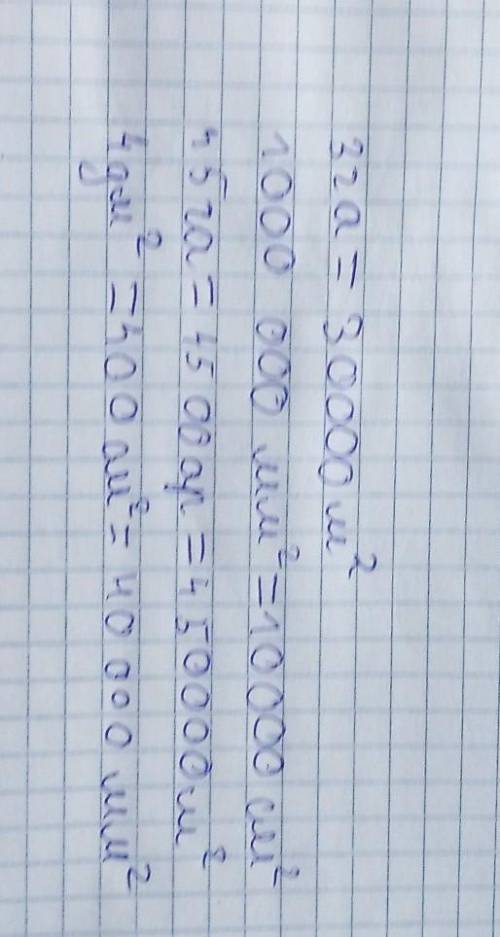 3га = 30000 м²
1000 000 мм² = 10000 см²
45га = 4500ар = 450000м²
4дм² = 400 см² = 40 000 мм²